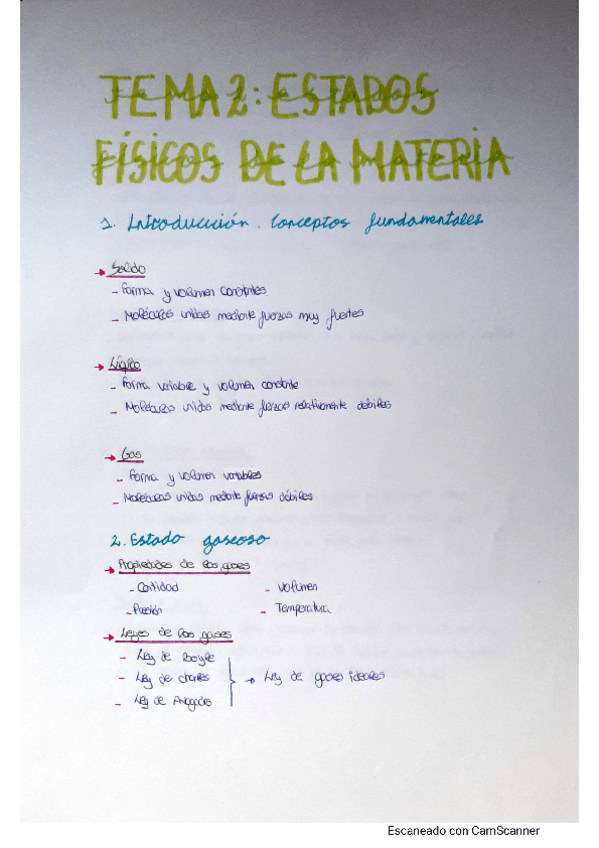 TEMA 2: ESTADOS
FÍSICOS DE LA MATERIA
1. Introducción. Conceptos fundamentales
→ Sólido
- Forma y volumen constantes.
- Moléculas unidas mediante fuerzas muy fuertes
→ Líquido
- Forma variable y volumen constante
- Moléculas unidas mediante fuerzas relativamente débiles
→ Gas
- Forma y volumen variables
- Moléculas unidas mediante fuerzas débiles
2. Estado gaseoso
→ Propiedades de los gases
- Cantidad - Volumen
- Presión - Temperatura
→ Leyes de los gases
- Ley de Boyle
- Ley de Charles → Ley de gases ideales
- Ley de Avogadro
Escaneado con CamScanner